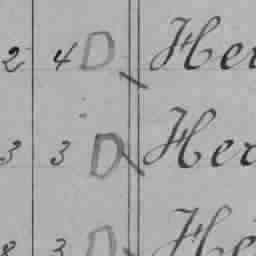 2 4 D Her
3 3 D Her
8 3 D He